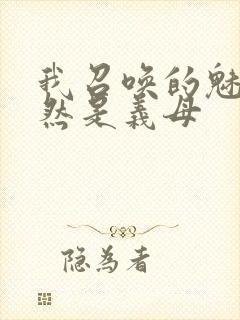 我召唤的魅
然是义母
隐为者